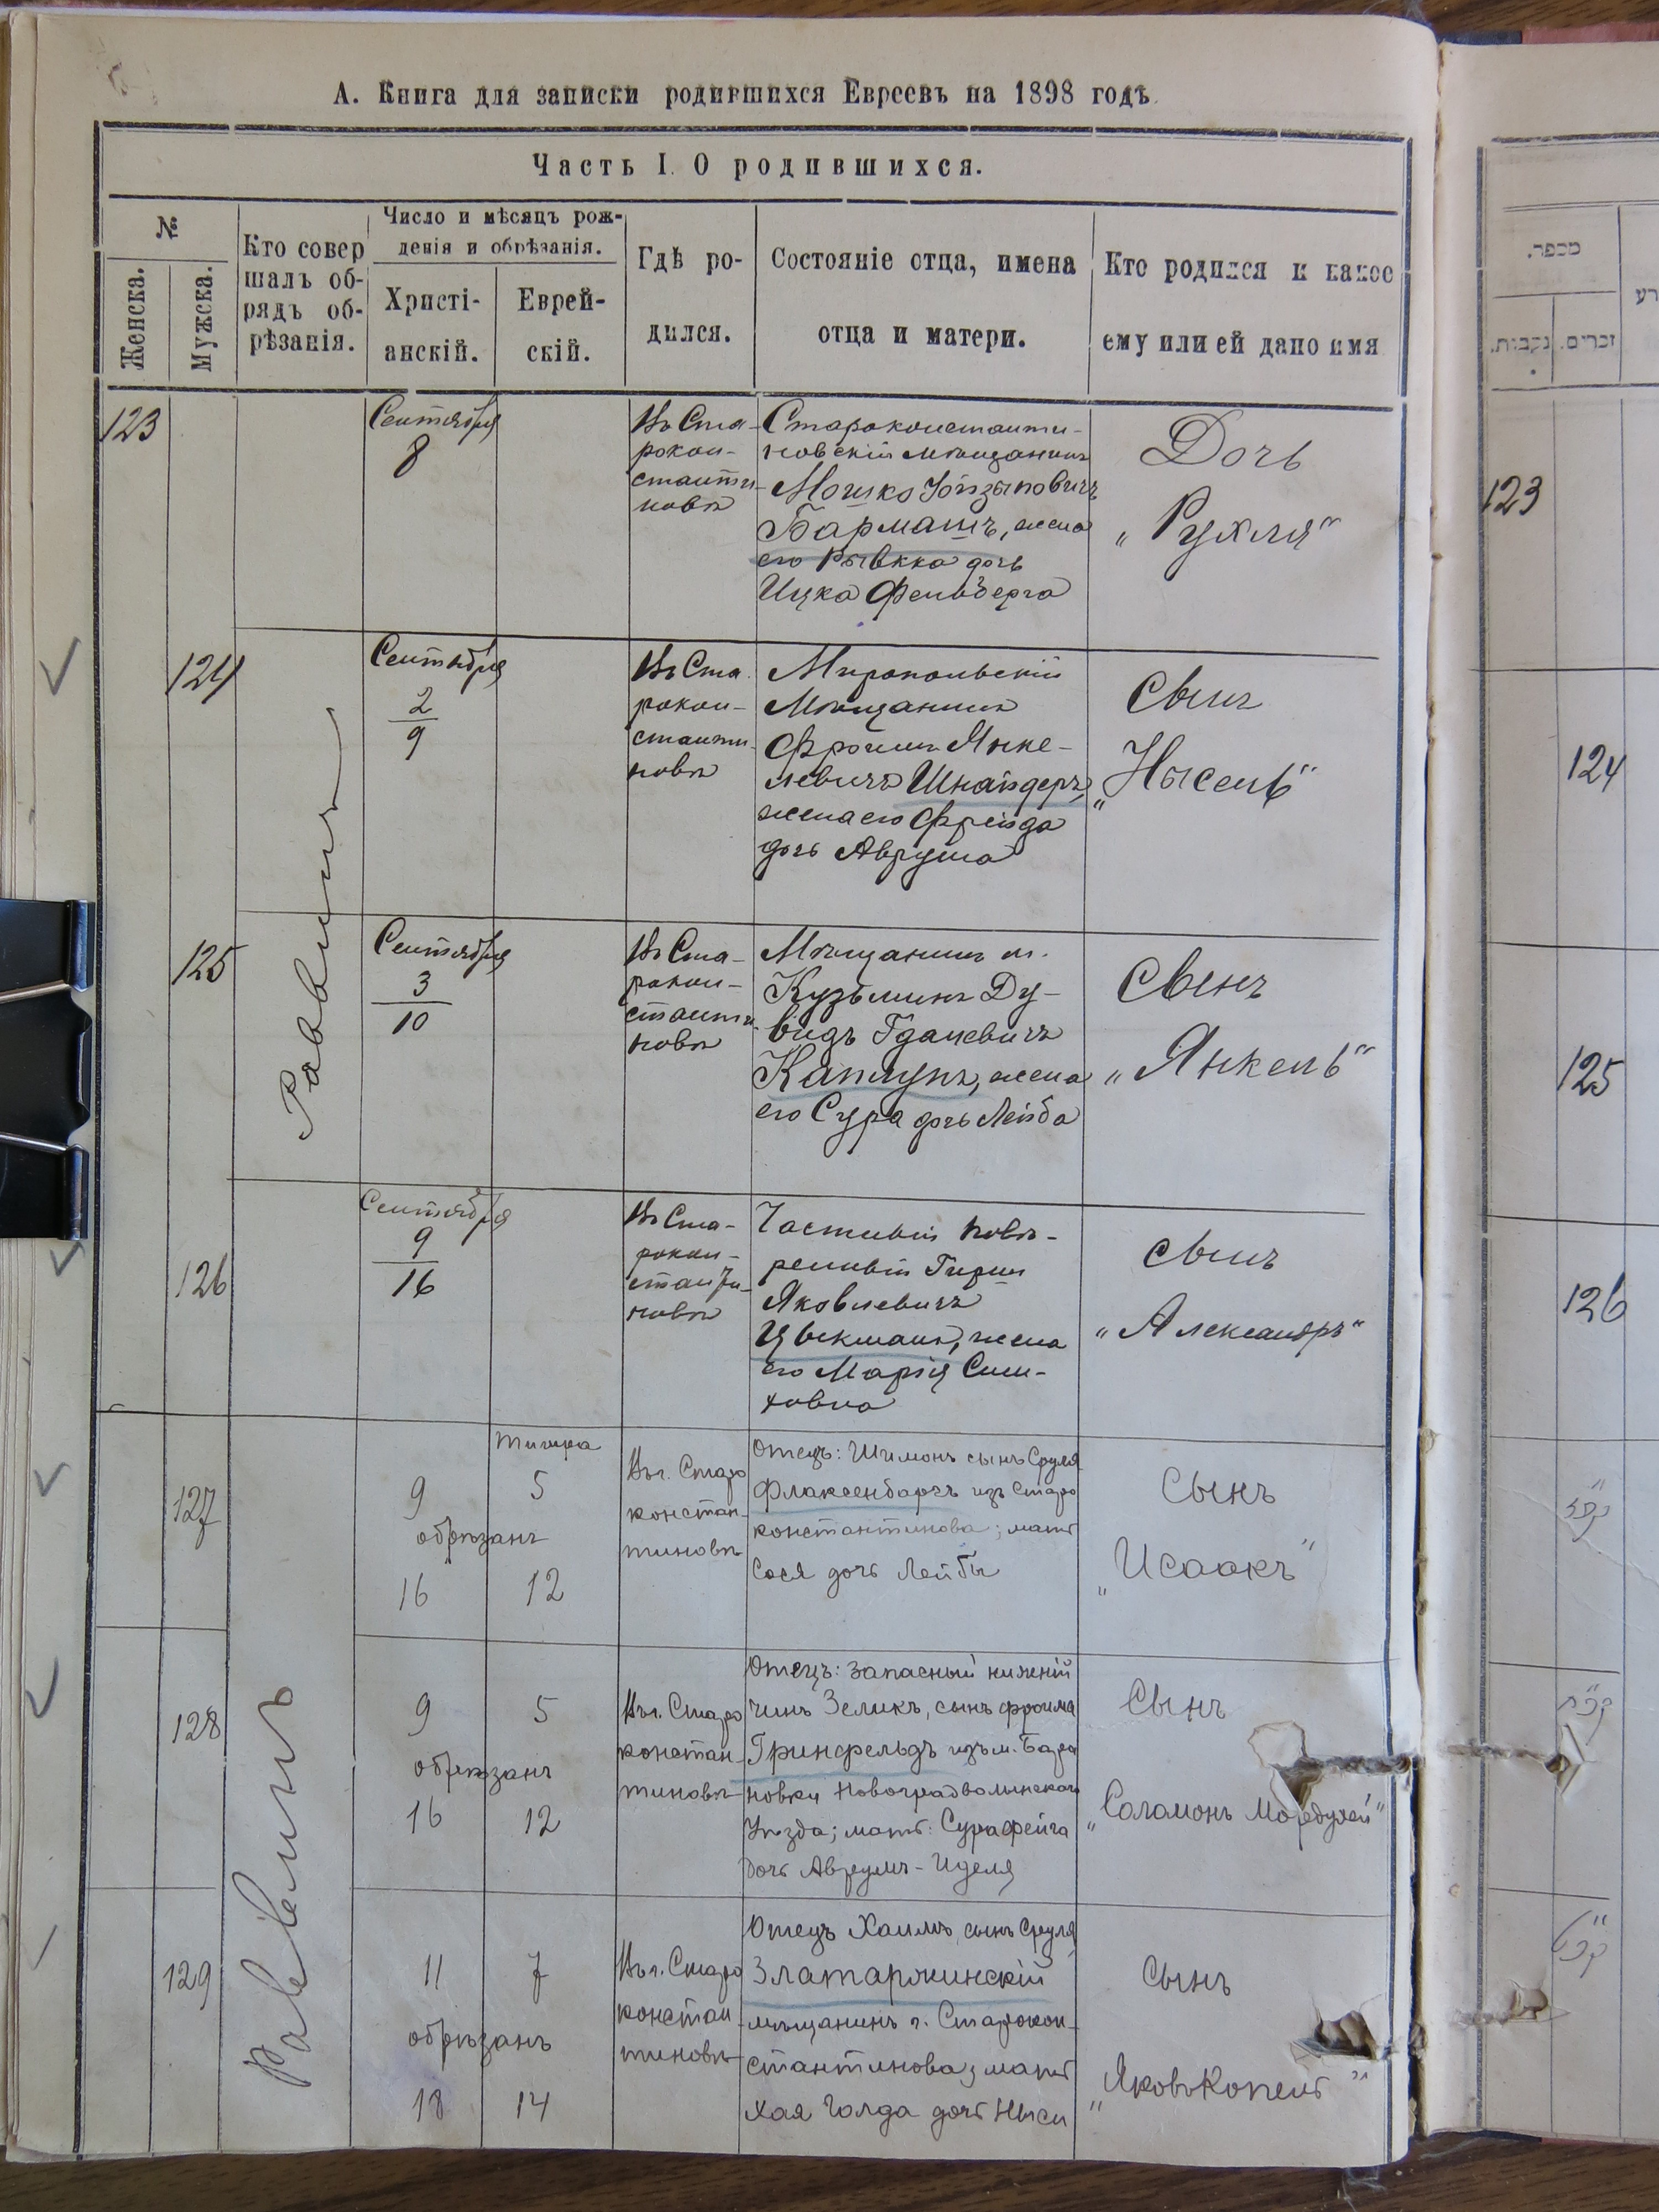 А. Книга для записки родившихся Евреевъ на 1898 годъ
Часть I. О родившихся.
№
Женска.
Мужска.
Кто совер
шалъ об-
рядъ об-
рѣзанія.
Число и мѣсяцъ рож-
денія и обрѣзанія.
Христі-
анскій.
Еврей-
скій.
Гдѣ ро-
дился.
Состояніе отца, имена
отца и матери.
Кто родился и какое
ему или ей дано имя
123
Сентября
8
Въ Ста-
рокон-
станти-
новѣ
Староконстанти-
новскій мѣщанинъ
Мошко
Бармашъ, жена
его Рывкка дочь
Ицка Фельдберга
Дочь
„Рухля“
124
Сентября
2
9
Въ Ста
рокон-
станти-
новѣ
Миропольскій
Мѣщанинъ
Фроимъ Янке-
левичъ Шнайдеръ,
жена его Фрейда
дочь Аврума
Сынъ
„Нысель“
Равинъ
125
Сентября
3
10
Въ Ста-
рокон-
станти-
новѣ
Мѣщанинъ м.
Кузьминъ Ду-
видъ Гдалевичъ
Каплунъ, жена
его Сура дочь Лейба
Сынъ
„Янкель“
126
Сентября
9
16
Въ Ста-
рокон-
станти-
новѣ
Частный повѣ-
ренный Гирш
Яковлевичъ
Цвекманъ, жена
его Марія Сим-
ховна
Сынъ
„Александръ“
127
Тишра
9
5
обрѣзанъ
16
12
Въ г. Старо
констан-
тиновѣ
Отецъ: Шимонъ сынъ Сруля
Флаксенбаргъ изъ Старо
константинова; мать
Сося дочь Лейбы
Сынъ
„Исаакъ“
128
9
5
обрѣзанъ
16
12
Въ г. Старо
констан-
тиновѣ
Отецъ: запасный нижній
чинъ Зеликъ, сынъ Фроима
Гринфельдъ изъ м. Бара
новки Новоградволынскаго
Уѣзда; мать: Сура Фейга
дочь Аврумъ-Иделя
Сынъ
„Соломонъ Мордухей“
Равинъ
129
11
7
обрѣзанъ
18
14
Въ г. Старо
констан
тиновѣ
Отецъ Хаимъ, сынъ Сруля
мѣщанинъ г. Старокон-
стантинова; мать
Хая Голда дочь Ныси
Сынъ
„Яковъ Копель“
מספר.
נקבות.
זכרים.
123
124
125
126